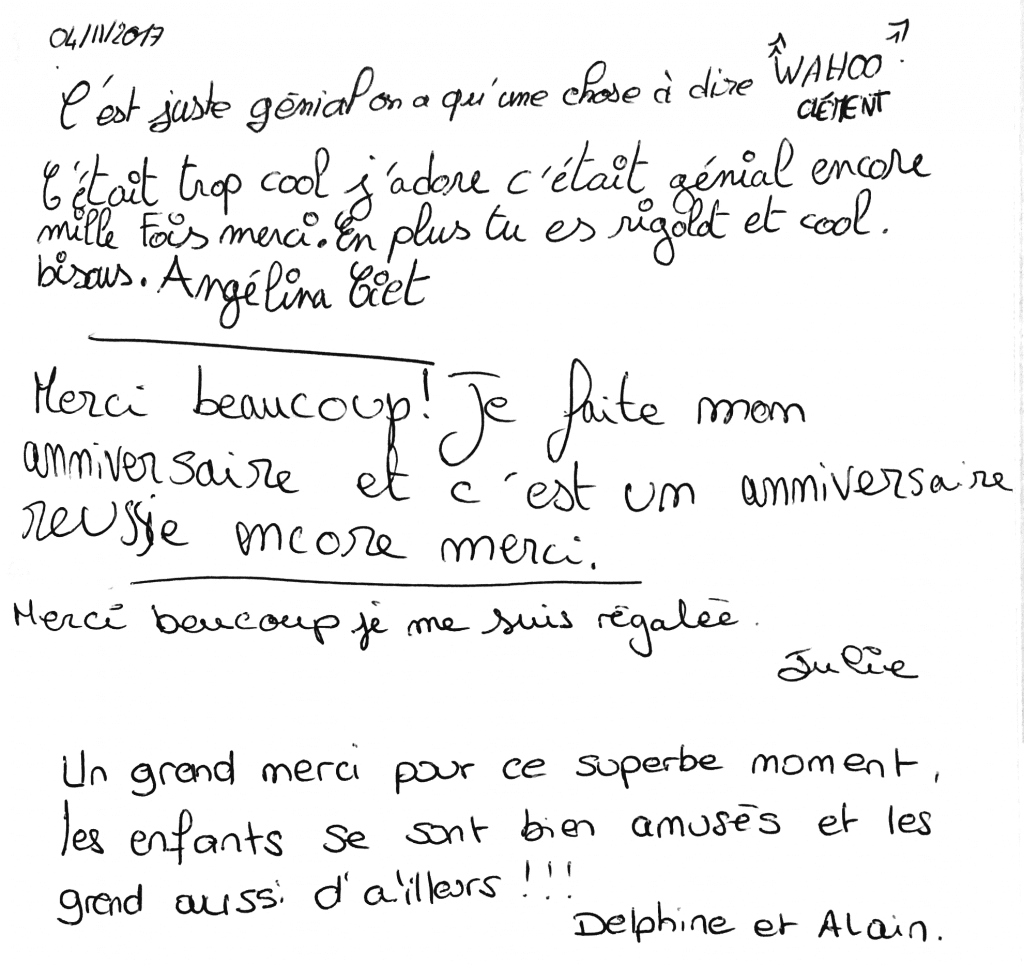 04/11/2017
C'est juste génial on a qu'une chose à dire "WAHOO"
CLÉMENT
C'était trop cool j'adore c'était génial encore
mille fois merci. En plus tu es rigolot et cool.
bisous. Angélina
Merci beaucoup! Je faite mon
anniversaire et c'est un anniversaire
reussie encore merci.
Merci beaucoup je me suis régalée.
Julie
Un grand merci pour ce superbe moment,
les enfants se sont bien amusés et les
grand aussi d'ailleurs !!!
Delphine et Alain.